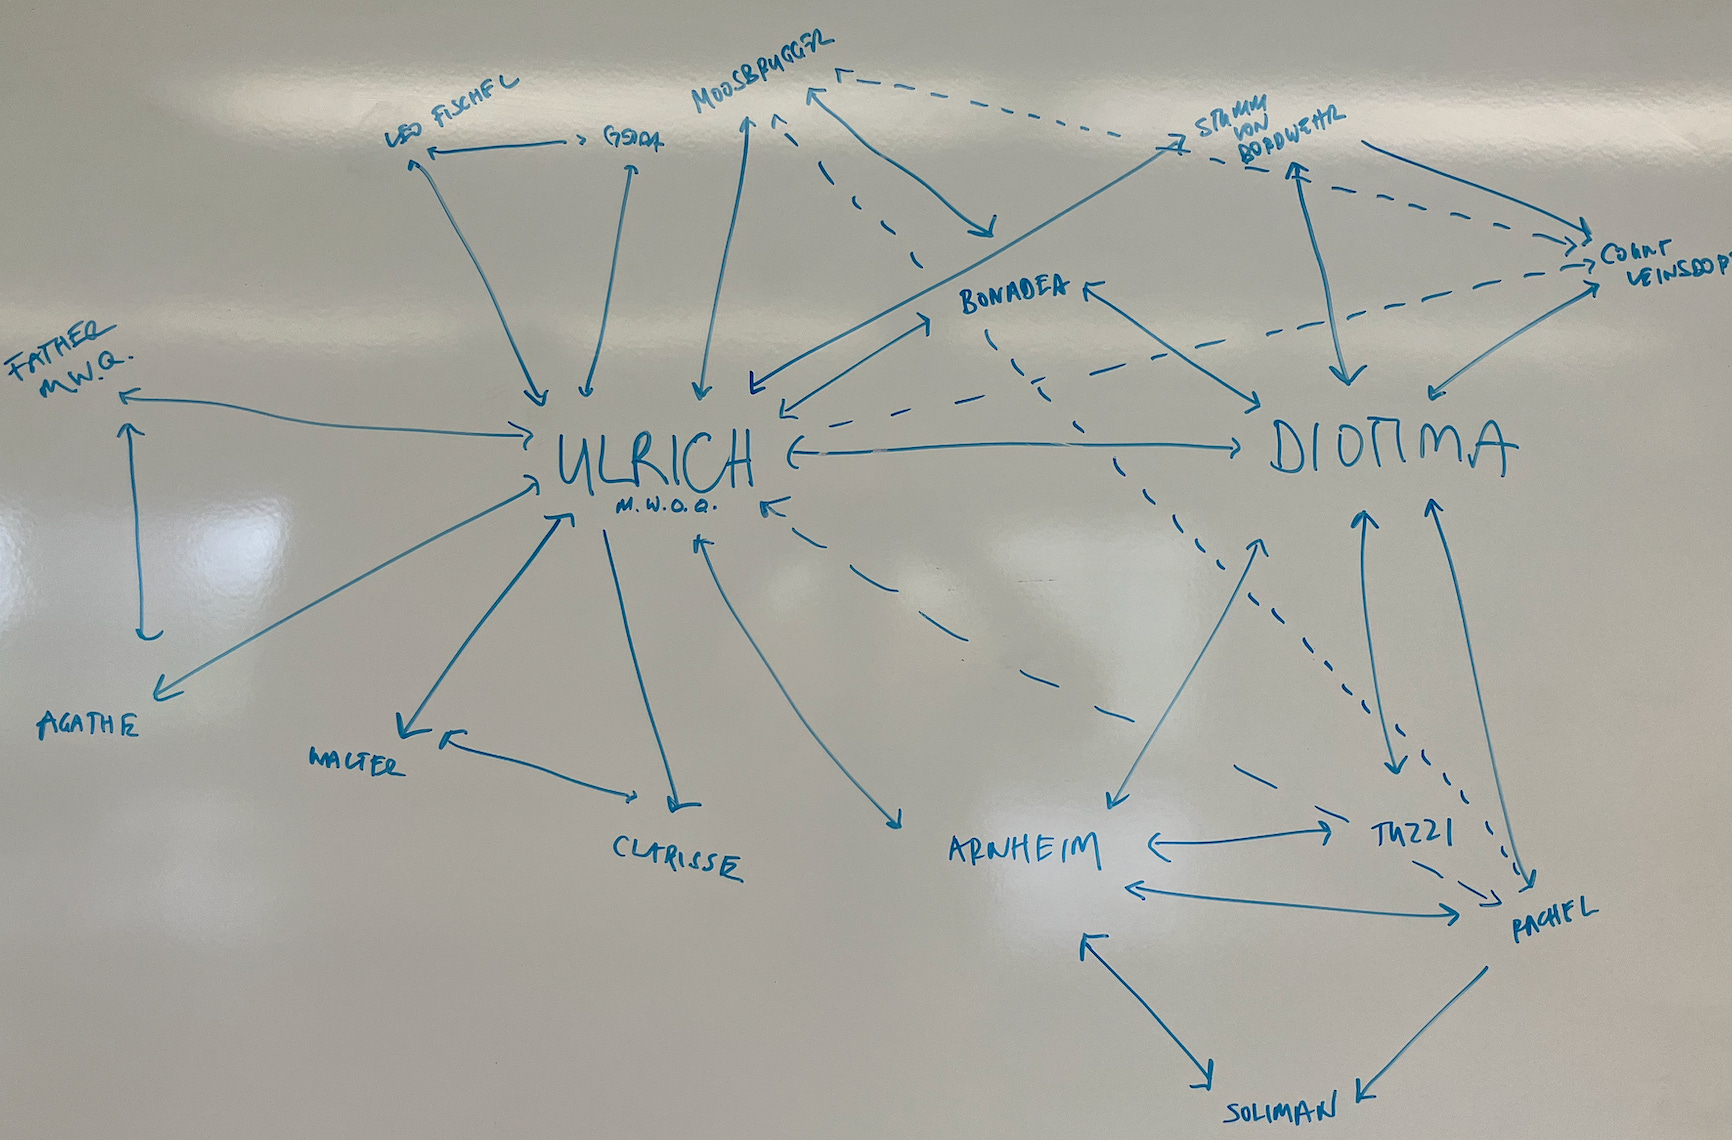 MOOSBRUGGER
LEO FISCHEL
GERDA
STUMM
VON
BORDWEHR
COUNT
LEINSDORF
BONADEA
FATHER
M.W.Q.
ULRICH
M.W.O.Q.
DIOTIMA
AGATHE
WALTER
CLARISSE
ARNHEIM
TUZZI
RACHEL
SOLIMAN